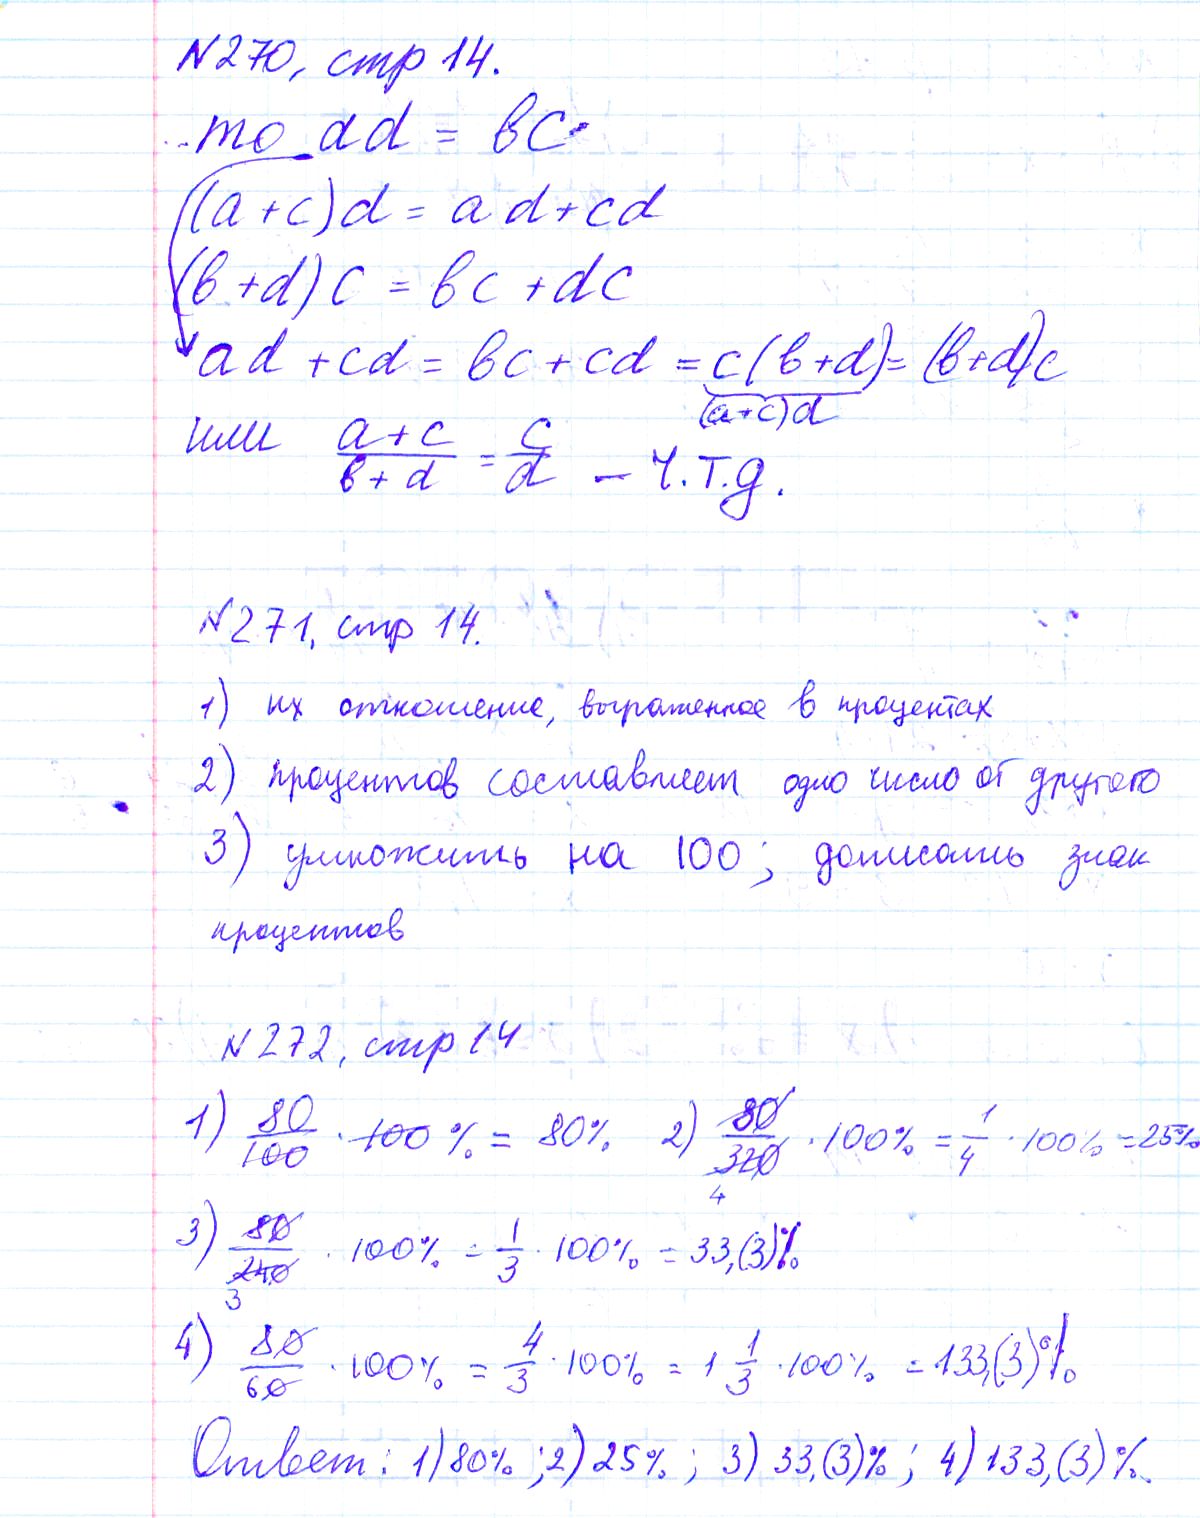 №270, стр 14.
то ad = вс
(a+c)d = ad+cd
(в+d)c = вс+dc
ad+cd = вс+cd = c(в+d) = (в+d)c
(a+c)d
или a+c/в+d = c/d – ч.т.д.
№271, стр 14.
1) их отношение, выраженное в процентах
2) процентов составляет одно число от другого
3) умножить на 100; дописать знак
процентов
№272, стр 14
1) 80/100 · 100% = 80% 2) 80/320 · 100% = 1/4 · 100% = 25%
4
3) 80/240 · 100% = 1/3 · 100% = 33,(3)%
3
4) 80/60 · 100% = 4/3 · 100% = 1 1/3 · 100% = 133,(3)%
Ответ: 1) 80%; 2) 25%; 3) 33,(3)%; 4) 133,(3)%.